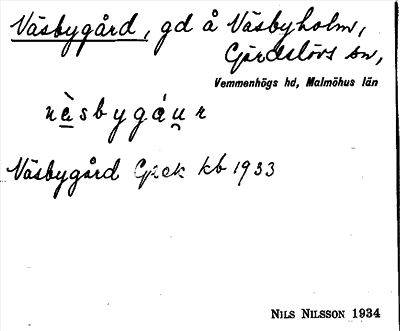 Näsbygård, gd å Näsbyholm,
Gärdslövs sn,
Vemmenhögs hd, Malmöhus län
nè̱sbygáṷr
Näsbygård Gzek kb 1933
NILS NILSSON 1934